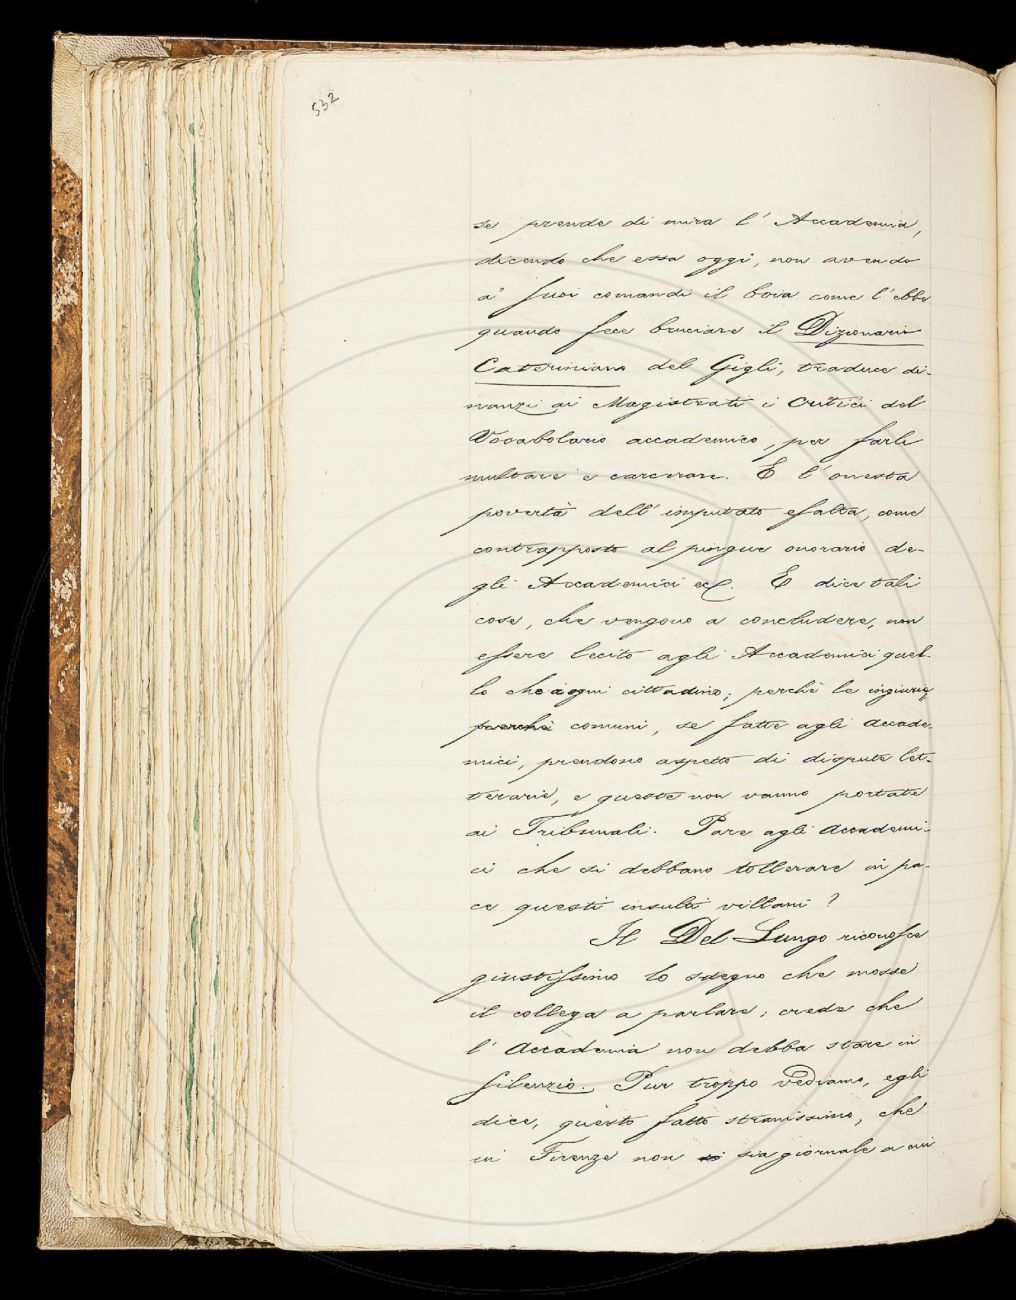 532
se prende di mira l'Accademia,
dicendo che essa oggi, non avendo
a' suoi comandi il boia come l'ebbe
quando fece bruciare il Dizionario
Cateriniano del Gigli, traduce di-
nanzi ai Magistrati i Critici del
Vocabolario accademico, per farli
multare e carcerare. E l'onesta
povertà dell'imputato esalta, come
contrapposto al pingue onorario de-
gli Accademici ecc. E dice tali
cose, che vengono a concludere, non
essere lecito agli Accademici quel-
lo che è ogni cittadino; perchè le ingiurie
perchè comuni, se fatte agli Accade-
mici, prendono aspetto di dispute let-
terarie, e queste non vanno portate
ai Tribunali. Pare agli Accademi-
ci che si debbano tollerare in pa-
ce questi insulti villani?
Il Del Lungo riconosce
giustissimo lo sdegno che mosse
il collega a parlare; crede che
l'Accademia non debba stare in
silenzio. Pur troppo vediamo, egli
dice, questo fatto stranissimo, che
in Firenze non sia giornale a cui